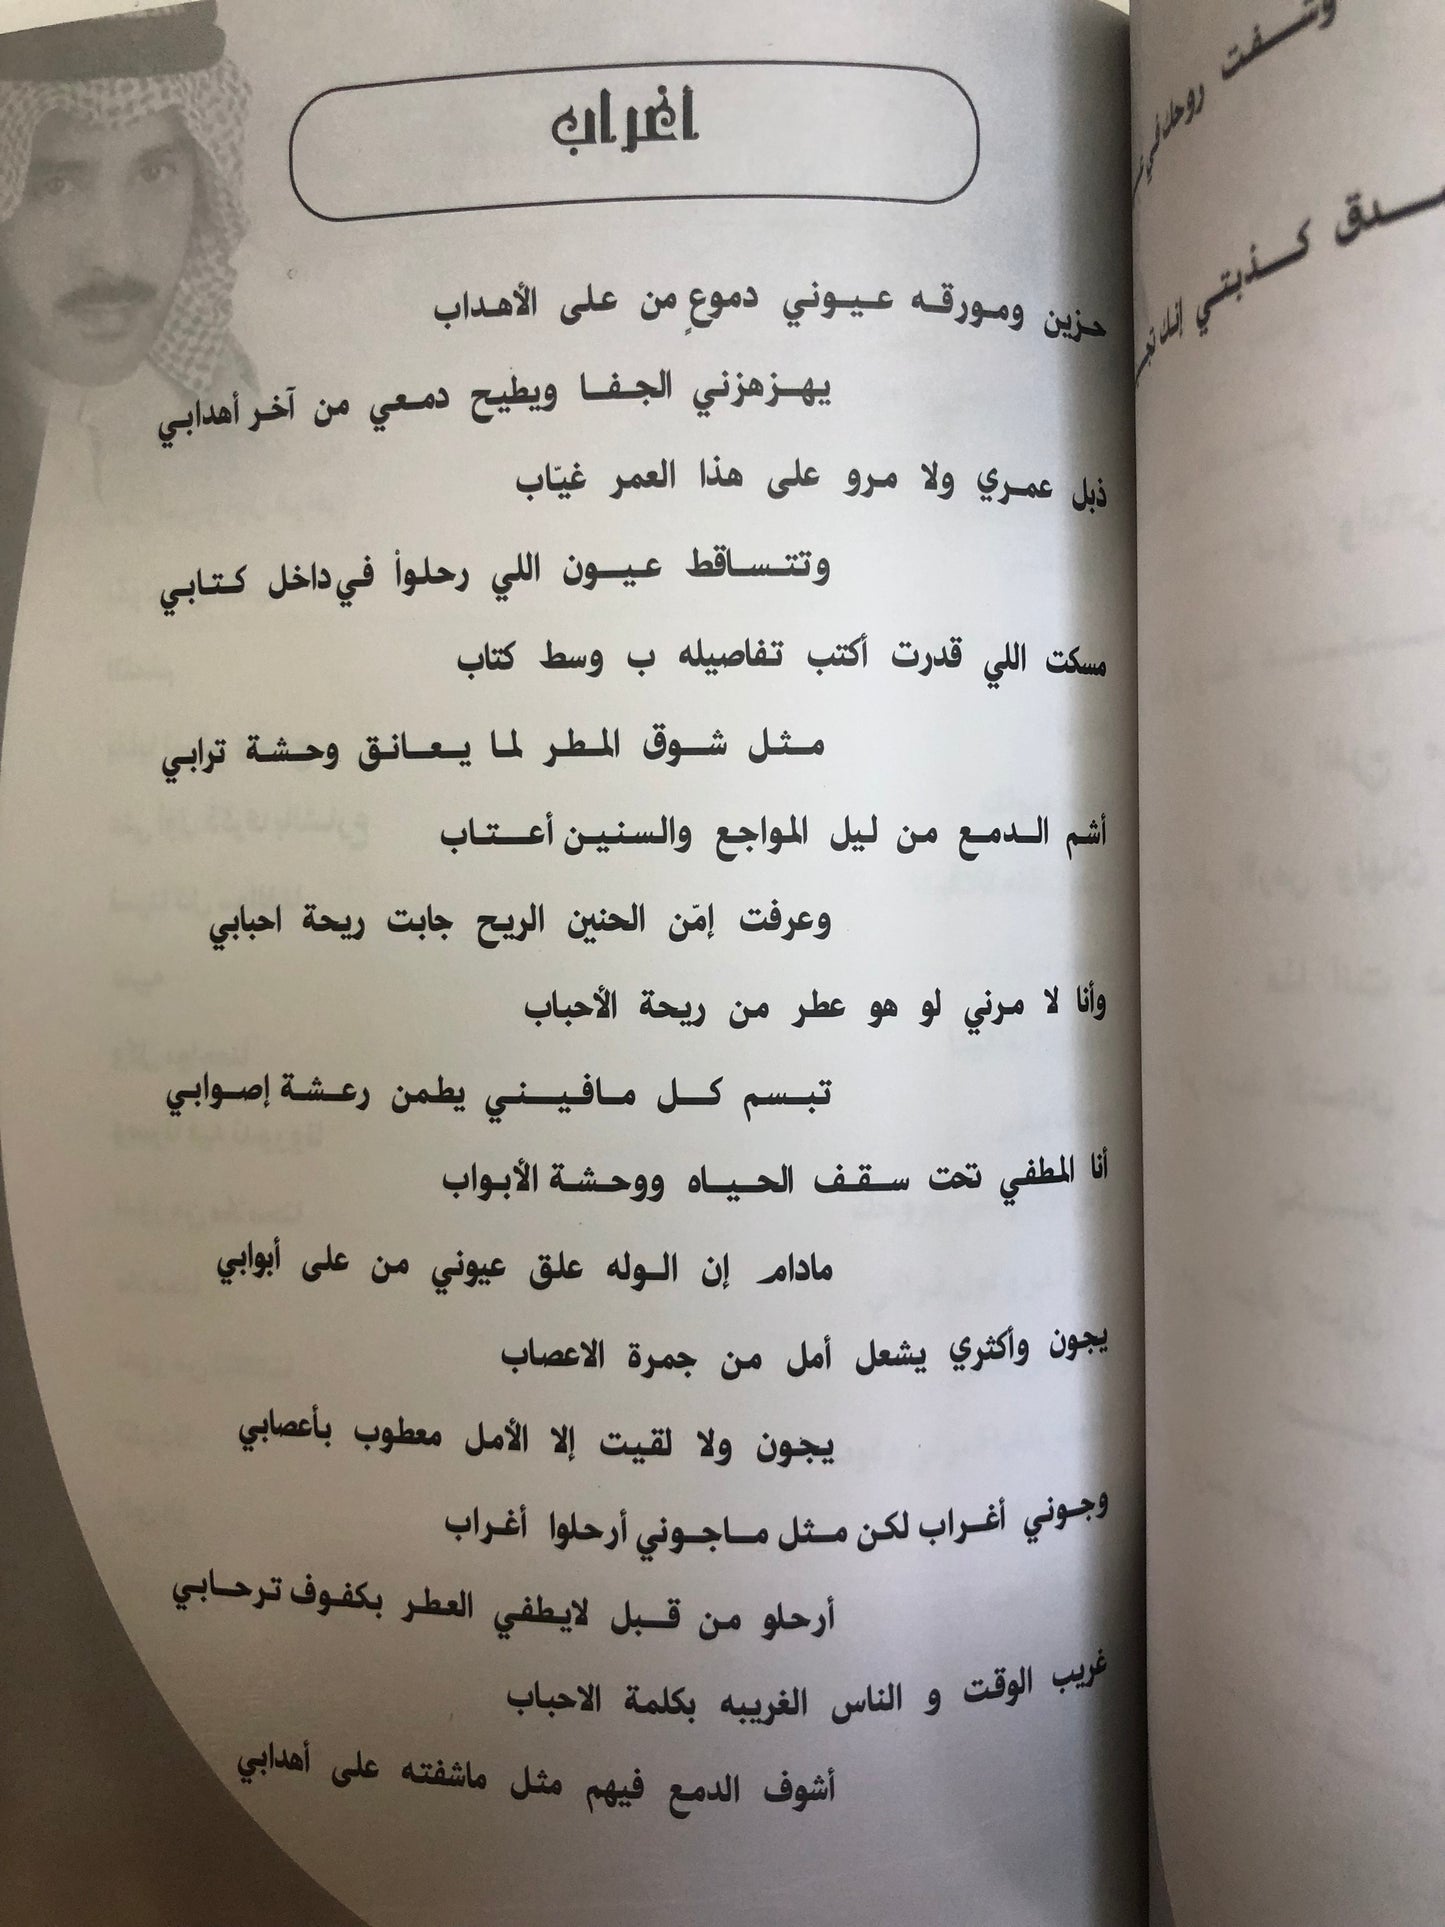 أغراب
حزين ومورقه عيوني دموعٍ من على الأهداب
يهزهزني الجفا ويطيح دمعي من آخر أهدابي
ذبل عمري ولا مرو على هذا العمر غيّاب
وتتساقط عيون اللي رحلوأ في داخل كتابي
مسكت اللي قدرت أكتب تفاصيله ب وسط كتاب
مثل شوق المطر لما يعانق وحشة ترابي
أشم الدمع من ليل المواجع والسنين أعتاب
وعرفت إمّن الحنين الريح جابت ريحة احبابي
وأنا لا مرني لو هو عطر من ريحة الأحباب
تبسم كل مافيني يطمن رعشة إصوابي
أنا المطفي تحت سقف الحياه ووحشة الأبواب
مادام إن الوله علق عيوني من على أبوابي
يجون وأكثري يشعل أمل من جمرة الاعصاب
يجون ولا لقيت إلا الأمل معطوب بأعصابي
وجوني أغراب لكن مثل ماجوني أرحلوا أغراب
أرحلو من قبل لايطفي العطر بكفوف ترحابي
غريب الوقت و الناس الغريبه بكلمة الاحباب
أشوف الدمع فيهم مثل ماشفته على أهدابي
وشفت روحك في
كذبتي إنك